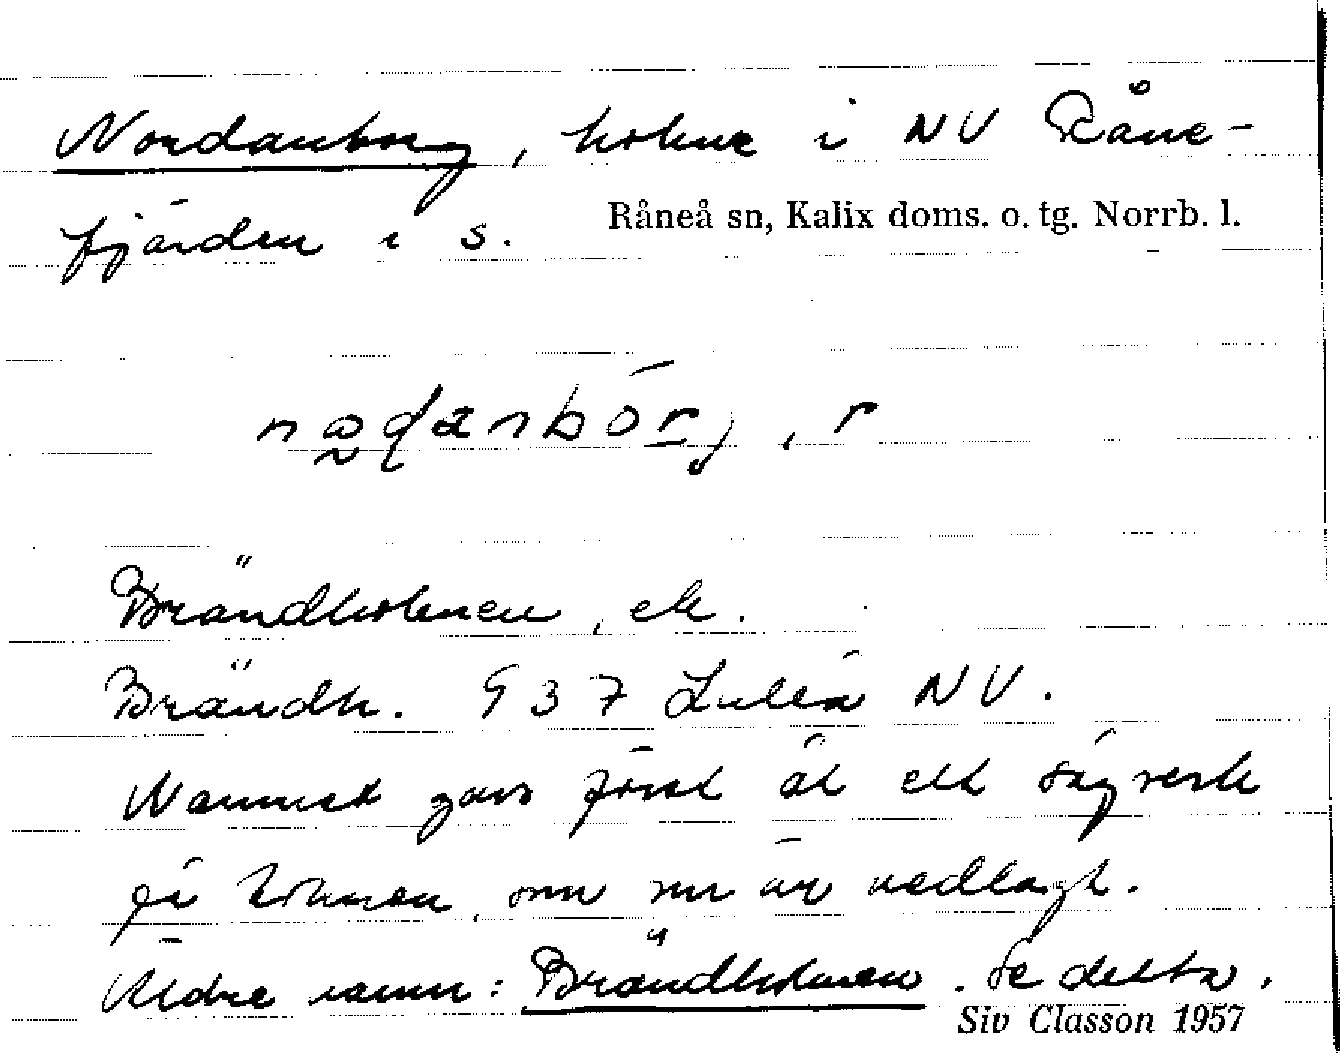 Nordanborg, holme i NV Råne-
fjärden i s. Råneå sn, Kalix doms. o. tg. Norrb. l.
Brändholmen, ek.
Brändh. 937 Luleå NV.
Namnet gavs först åt ett sågverk
på holmen, som nu är nedlagt.
Äldre namn: Brändholmen. Se detta.
Siv Classon 1957